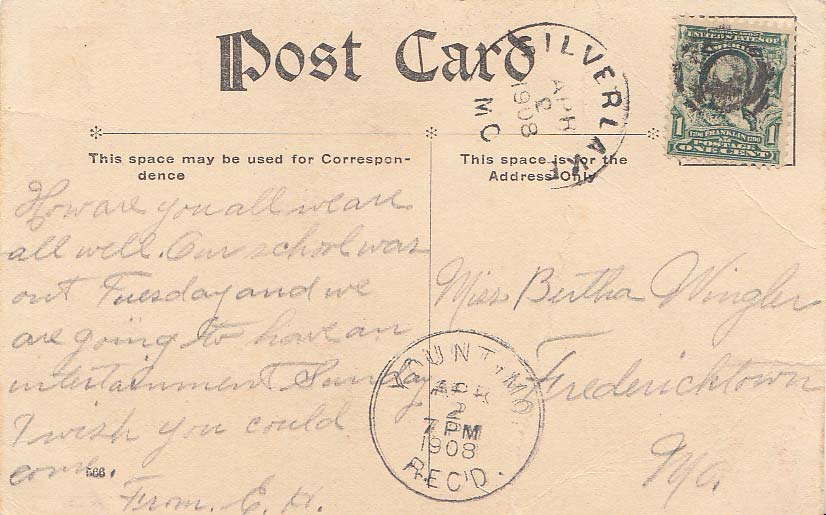 Post Card
SILVERLAKE
APR
2
1908
MO
UNITED STATES OF
AMERICA
1 1790 FRANKLIN 1790 1
POSTAGE
ONE CENT
This space may be used for Correspon-
dence
This space is for the
Address Only
How are you all we are
all well. Our school was
out Tuesday and we
are going to have an
intertainment Sunday
I wish you could
come.
From. E. H.
566
Miss Bertha Wingler
Fredericktown
Mo.
YOUNT, MO
APR
2
7 PM
1908
REC'D.